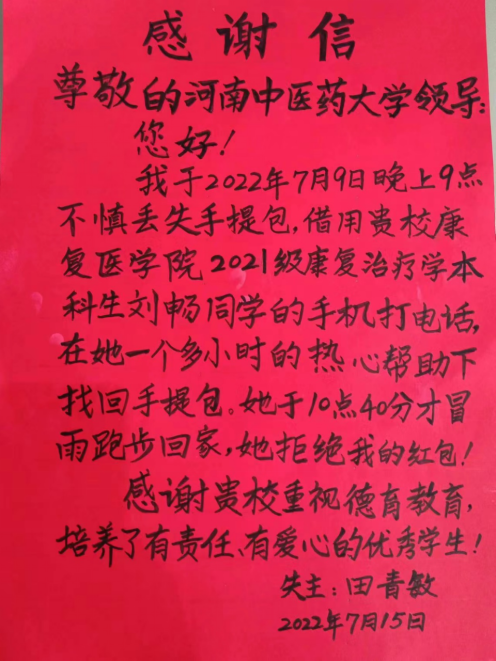 感谢信
尊敬的河南中医药大学领导:
您好!
我于2022年7月9日晚上9点
不慎丢失手提包,借用贵校康
复医学院2021级康复治疗学本
科生刘畅同学的手机打电话,
在她一个多小时的热心帮助下
找回手提包。她于10点40分才冒
雨跑步回家,她拒绝我的红包!
感谢贵校重视德育教育,
培养了有责任、有爱心的优秀学生!
失主:田青敏
2022年7月15日